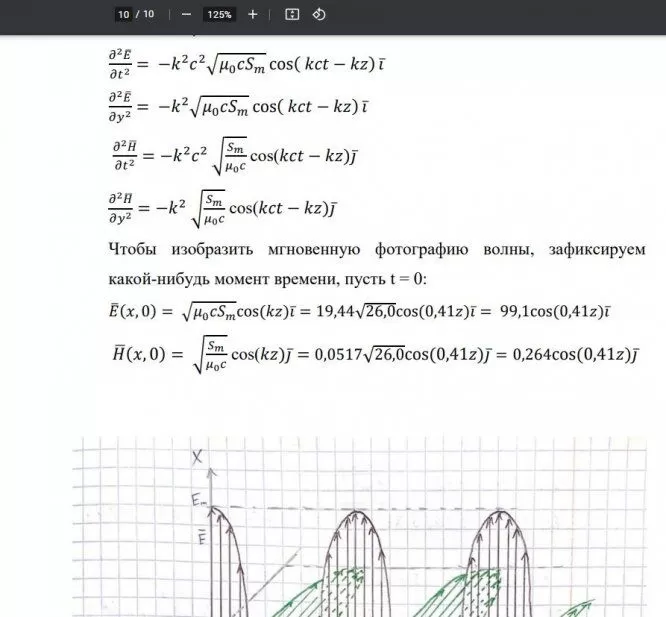 10 / 10 — 125% +
∂²Ē/∂t² = −k²c²√(μ₀cSₘ) cos( kct − kz) ī
∂²Ē/∂y² = −k²√(μ₀cSₘ) cos( kct − kz) ī
∂²H̄/∂t² = −k²c² √(Sₘ/μ₀c) cos(kct − kz)j̄
∂²H̄/∂y² = −k² √(Sₘ/μ₀c) cos(kct − kz)j̄
Чтобы изобразить мгновенную фотографию волны, зафиксируем
какой-нибудь момент времени, пусть t = 0:
Ē(x, 0) = √(μ₀cSₘ)cos(kz)ī = 19,44√26,0cos(0,41z)ī = 99,1cos(0,41z)ī
H̄(x, 0) = √(Sₘ/μ₀c) cos(kz)j̄ = 0,0517√26,0cos(0,41z)j̄ = 0,264cos(0,41z)j̄
X
Eₘ
Ē